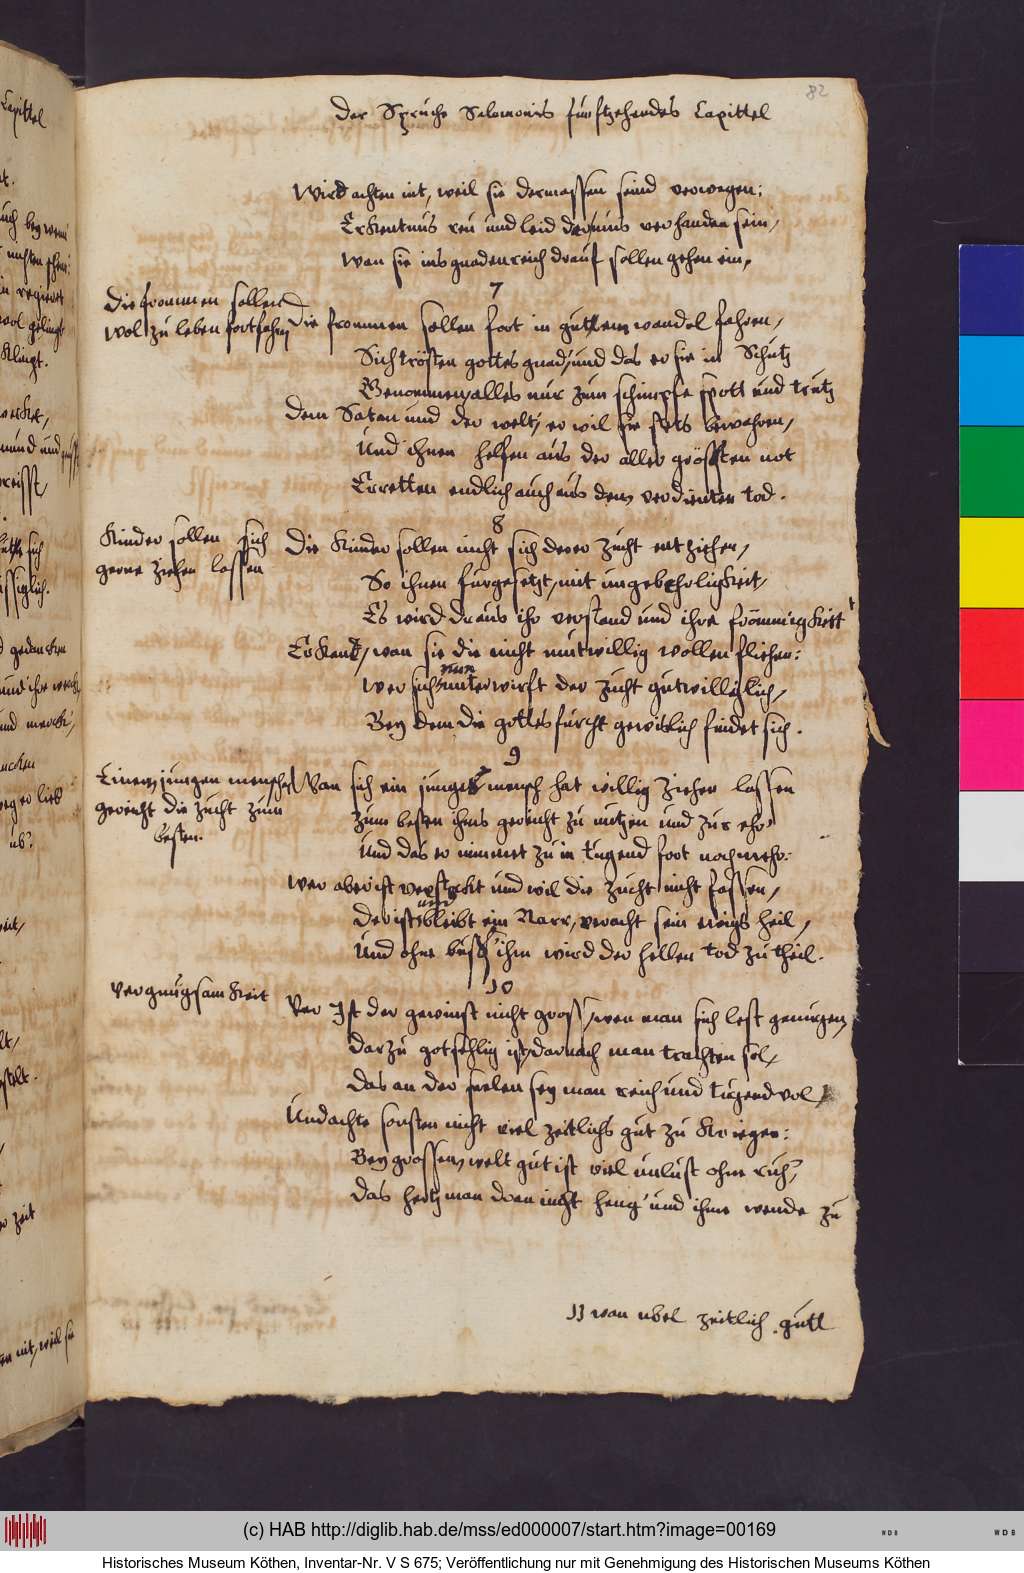 82
Der Sprüche Salomonis funftzehendes Capittel
Wird achten nit, weil sie dermassen seind verwegen;
Erkentnus reu und leid der mus verhanden sein,
wan sie ins gnadenreich drauf sollen gehen ein,
7
Die frommen sollen
wol zu leben fortfahrn
Die frommen sollen fort in guttem wandel fahren,
Sich trösten gottes gnad, und das er sie in Schutz
Genommen, alles nur zum schimpfe spott und trutz
Dem Satan und der welt, er wil sie stets bewahren,
Und ihnen helfen aus der aller grössten not
Erretten endlich auch aus dem verdienten tod.
8
Kinder sollen sich
gerne ziehen lassen
Die Kinder sollen nicht sich derer zucht entziehen,
So ihnen furgesetzt, mit ungebehrligkeit,
Es wird draus ihr verstand und ihre frömmigkeit
Erkent, wan sie die nicht mutwillig wollen fliehen:
Wer sich nun unterwirft der zucht gutwilliglich,
Bey dem die gottesfurcht gewislich findet sich.
9
Einem jungen menschen
gereicht die zucht zum
besten.
Wan sich ein junger mensch hat willig ziehen lassen
Zum besten ihms gereicht zu nutzen und zur ehr,
Und das er nimmet zu in tugend fort noch mehr:
Wer aber ist verstockt und wil die zucht nicht fassen,
Der ist und bleibt ein Narr, vracht sein ewigs heil,
Und ohne buss' ihm wird der hellen tod zu theil.
10
Vergnugsamkeit
Der Ist der gewinst nicht gross, wen man sich lest genügen,
Darzu gotsehlig ist, darnach man trachten sol,
Das an der seelen sey man reich und tugend vol,
Und achte sonsten nicht viel zeitlichs gut zu kriegen:
Bey grossem welt gut ist viel unlust ohne ruh,
Das hertz man dran nicht heng' und ihme wende zu
11 wan ubel zeitlich gutt
Capittel
(c) HAB http://diglib.hab.de/mss/ed000007/start.htm?image=00169
WDB
WDB
Historisches Museum Köthen, Inventar-Nr. V S 675; Veröffentlichung nur mit Genehmigung des Historischen Museums Köthen